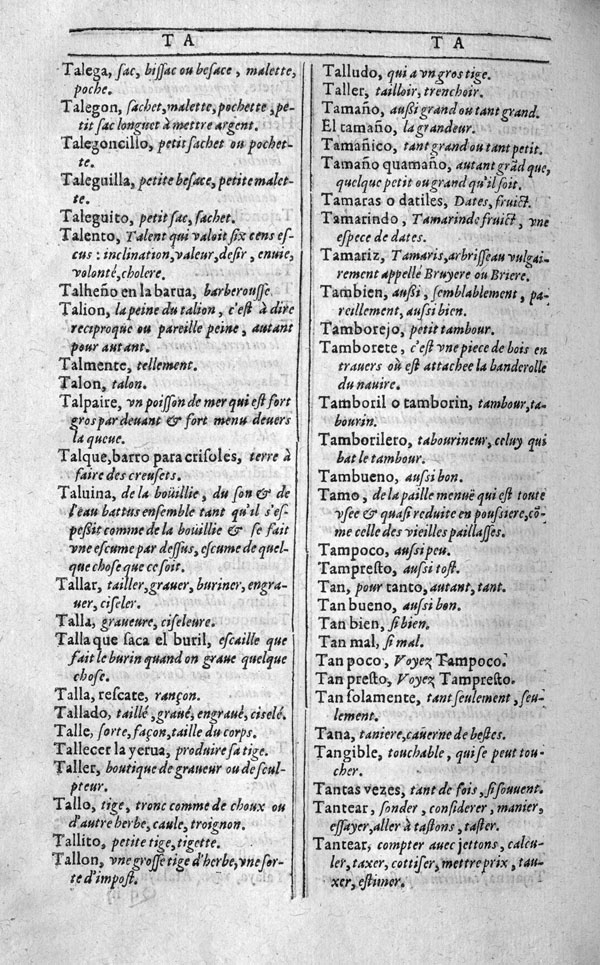 T A
Talega, sac, bissac ou besace, malette,
poche.
Talegon, sachet, malette, pochette, pe-
tit sac longuet à mettre argent.
Talegoncillo, petit sachet ou pochet-
te.
Taleguilla, petite besace, petite malet-
te.
Taleguito, petit sac, sachet.
Talento, Talent qui valoit six cens es-
cus : inclination, valeur, desir, enuie,
volonté, cholere.
Talheño en la barua, barberousse.
Talion, la peine du talion, c'est à dire
reciproque ou pareille peine, autant
pour autant.
Talmente, tellement.
Talon, talon.
Talpaire, vn poisson de mer qui est fort
gros par deuant & fort menu deuers
la queue.
Talque, barro para crisoles, terre à
faire des creusets.
Taluina, de la boüillie, du son & de
l'eau battus ensemble tant qu'il s'es-
pessit comme de la boüillie & se fait
vne escume par dessus, escume de quel-
que chose que ce soit.
Tallar, tailler, grauer, buriner, engra-
uer, ciseler.
Talla, graueure, ciseleure.
Talla que saca el buril, escaille que
fait le burin quand on graue quelque
chose.
Talla, rescate, rançon.
Tallado, taillé, graué, engraué, ciselé.
Talle, sorte, façon, taille du corps.
Tallecer la yerua, produire sa tige.
Taller, boutique de graueur ou de scul-
pteur.
Tallo, tige, tronc comme de choux ou
d'autre herbe, caule, troignon.
Tallito, petite tige, tigette.
Tallon, vne grosse tige d'herbe, vne sor-
te d'impost.
T A
Talludo, qui a vn gros tige.
Taller, tailloir, trenchoir.
Tamaño, aussi grand ou tant grand.
El tamaño, la grandeur.
Tamañico, tant grand ou tant petit.
Tamaño quamaño, autant grād que,
quelque petit ou grand qu'il soit.
Tamaras o datiles, Dates, fruict.
Tamarindo, Tamarinde fruict, vne
espece de dates.
Tamariz, Tamaris, arbrisseau vulgai-
rement appellé Bruyere ou Briere.
Tambien, aussi, semblablement, pa-
reillement, aussi bien.
Tamborejo, petit tambour.
Tamborete, c'est vne piece de bois en
trauers où est attachee la banderolle
du nauire.
Tamboril o tamborin, tambour, ta-
bourin.
Tamborilero, tabourineur, celuy qui
bat le tambour.
Tambueno, aussi bon.
Tamo, de la paille menuë qui est toute
vsee & quasi reduite en poussiere, cō-
me celle des vieilles paillasses.
Tampoco, aussi peu.
Tampresto, aussi tost.
Tan, pour tanto, autant, tant.
Tan bueno, aussi bon.
Tan bien, si bien.
Tan mal, si mal.
Tan poco, Voyez Tampoco.
Tan presto, Voyez Tampresto.
Tan solamente, tant seulement, seu-
lement.
Tana, taniere, cauerne de bestes.
Tangible, touchable, qui se peut tou-
cher.
Tantas vezes, tant de fois, si souuent.
Tantear, sonder, considerer, manier,
essayer, aller à tastons, taster.
Tantear, compter auec jettons, calcu-
ler, taxer, cottiser, mettre prix, tau-
xer, estimer.